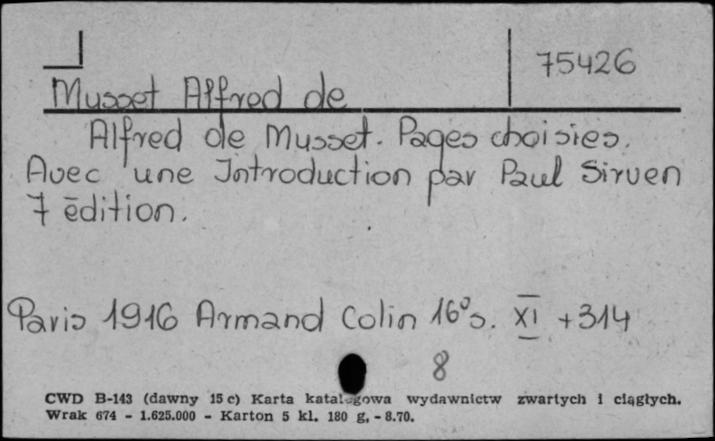 75426
Musset Alfred de
Alfred de Musset. Pages choisies.
Avec une Introduction par Paul Sirven
7 édition.
Paris 1916 Armand Colin 16° s. XI + 314
8
CWD B-143 (dawny 15 c) Karta katalogowa wydawnictw zwartych i ciągłych.
Wrak 674 - 1.625.000 - Karton 5 kl. 180 g. - 8.70.